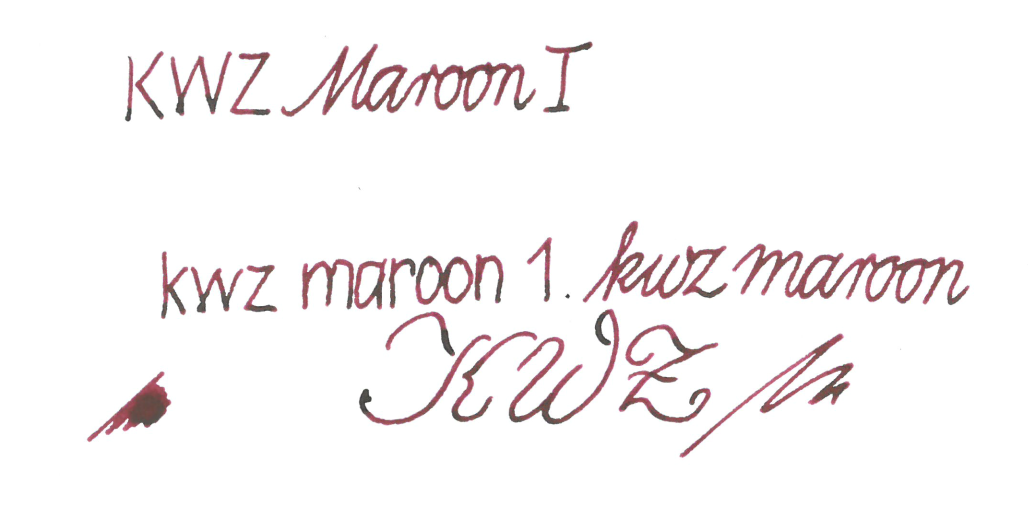 KWZ Maroon I
kwz maroon 1. kwz maroon
KWZ